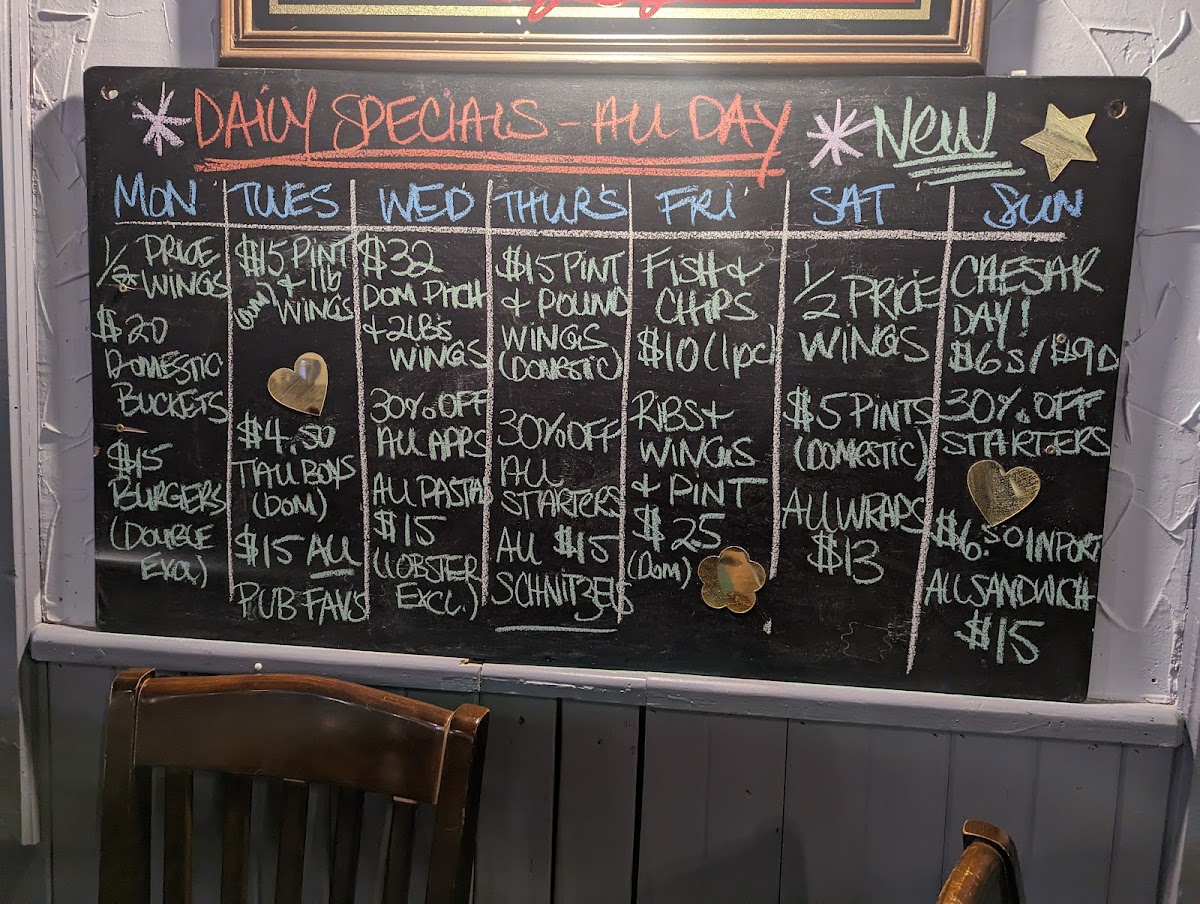 DAILY SPECIALS - ALL DAY
NEW
MON
1/2 PRICE
WINGS
$20
DOMESTIC
BUCKETS
$15
BURGERS
(DOUBLE
EXCL)
TUES
$15 PINT
(DOM) & 1lb
WINGS
$4.50
TALLBOYS
(DOM)
$15 ALL
PUB FAVS
WED
$32
DOM PITCH
+ 2LBS
WINGS
30% OFF
ALL APPS
ALL PASTA
$15
(LOBSTER
EXCL.)
THURS
$15 PINT
& POUND
WINGS
(DOMESTIC)
30% OFF
ALL
STARTERS
ALL $15
SCHNITZELS
FRI
FISH &
CHIPS
$10 (1pc)
RIBS +
WINGS
+ PINT
$25
(DOM)
SAT
1/2 PRICE
WINGS
$5 PINTS
(DOMESTIC)
ALL WRAPS
$13
SUN
CAESAR
DAY!
$6 S / $9 D
30% OFF
STARTERS
$6.50 IMPORT
ALL SANDWICH
$15